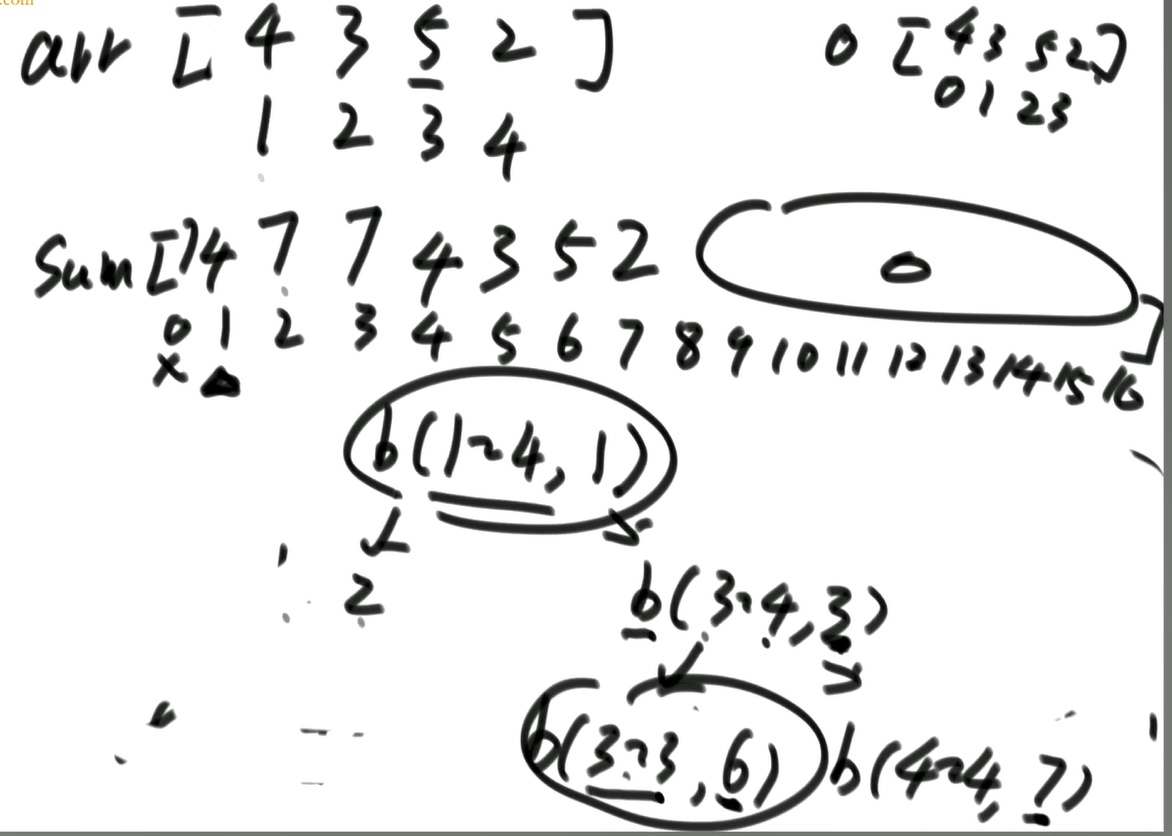 .com
arr [ 4 3 5 2 ]
1 2 3 4
0 [ 4 3 5 2 ]
0 1 2 3
Sum [ 14 7 7 4 3 5 2 0 ]
0 1 2 3 4 5 6 7 8 9 10 11 12 13 14 15 16
x
b(1~4, 1)
2
b(3~4, 3)
b(3~3, 6) b(4~4, 7)